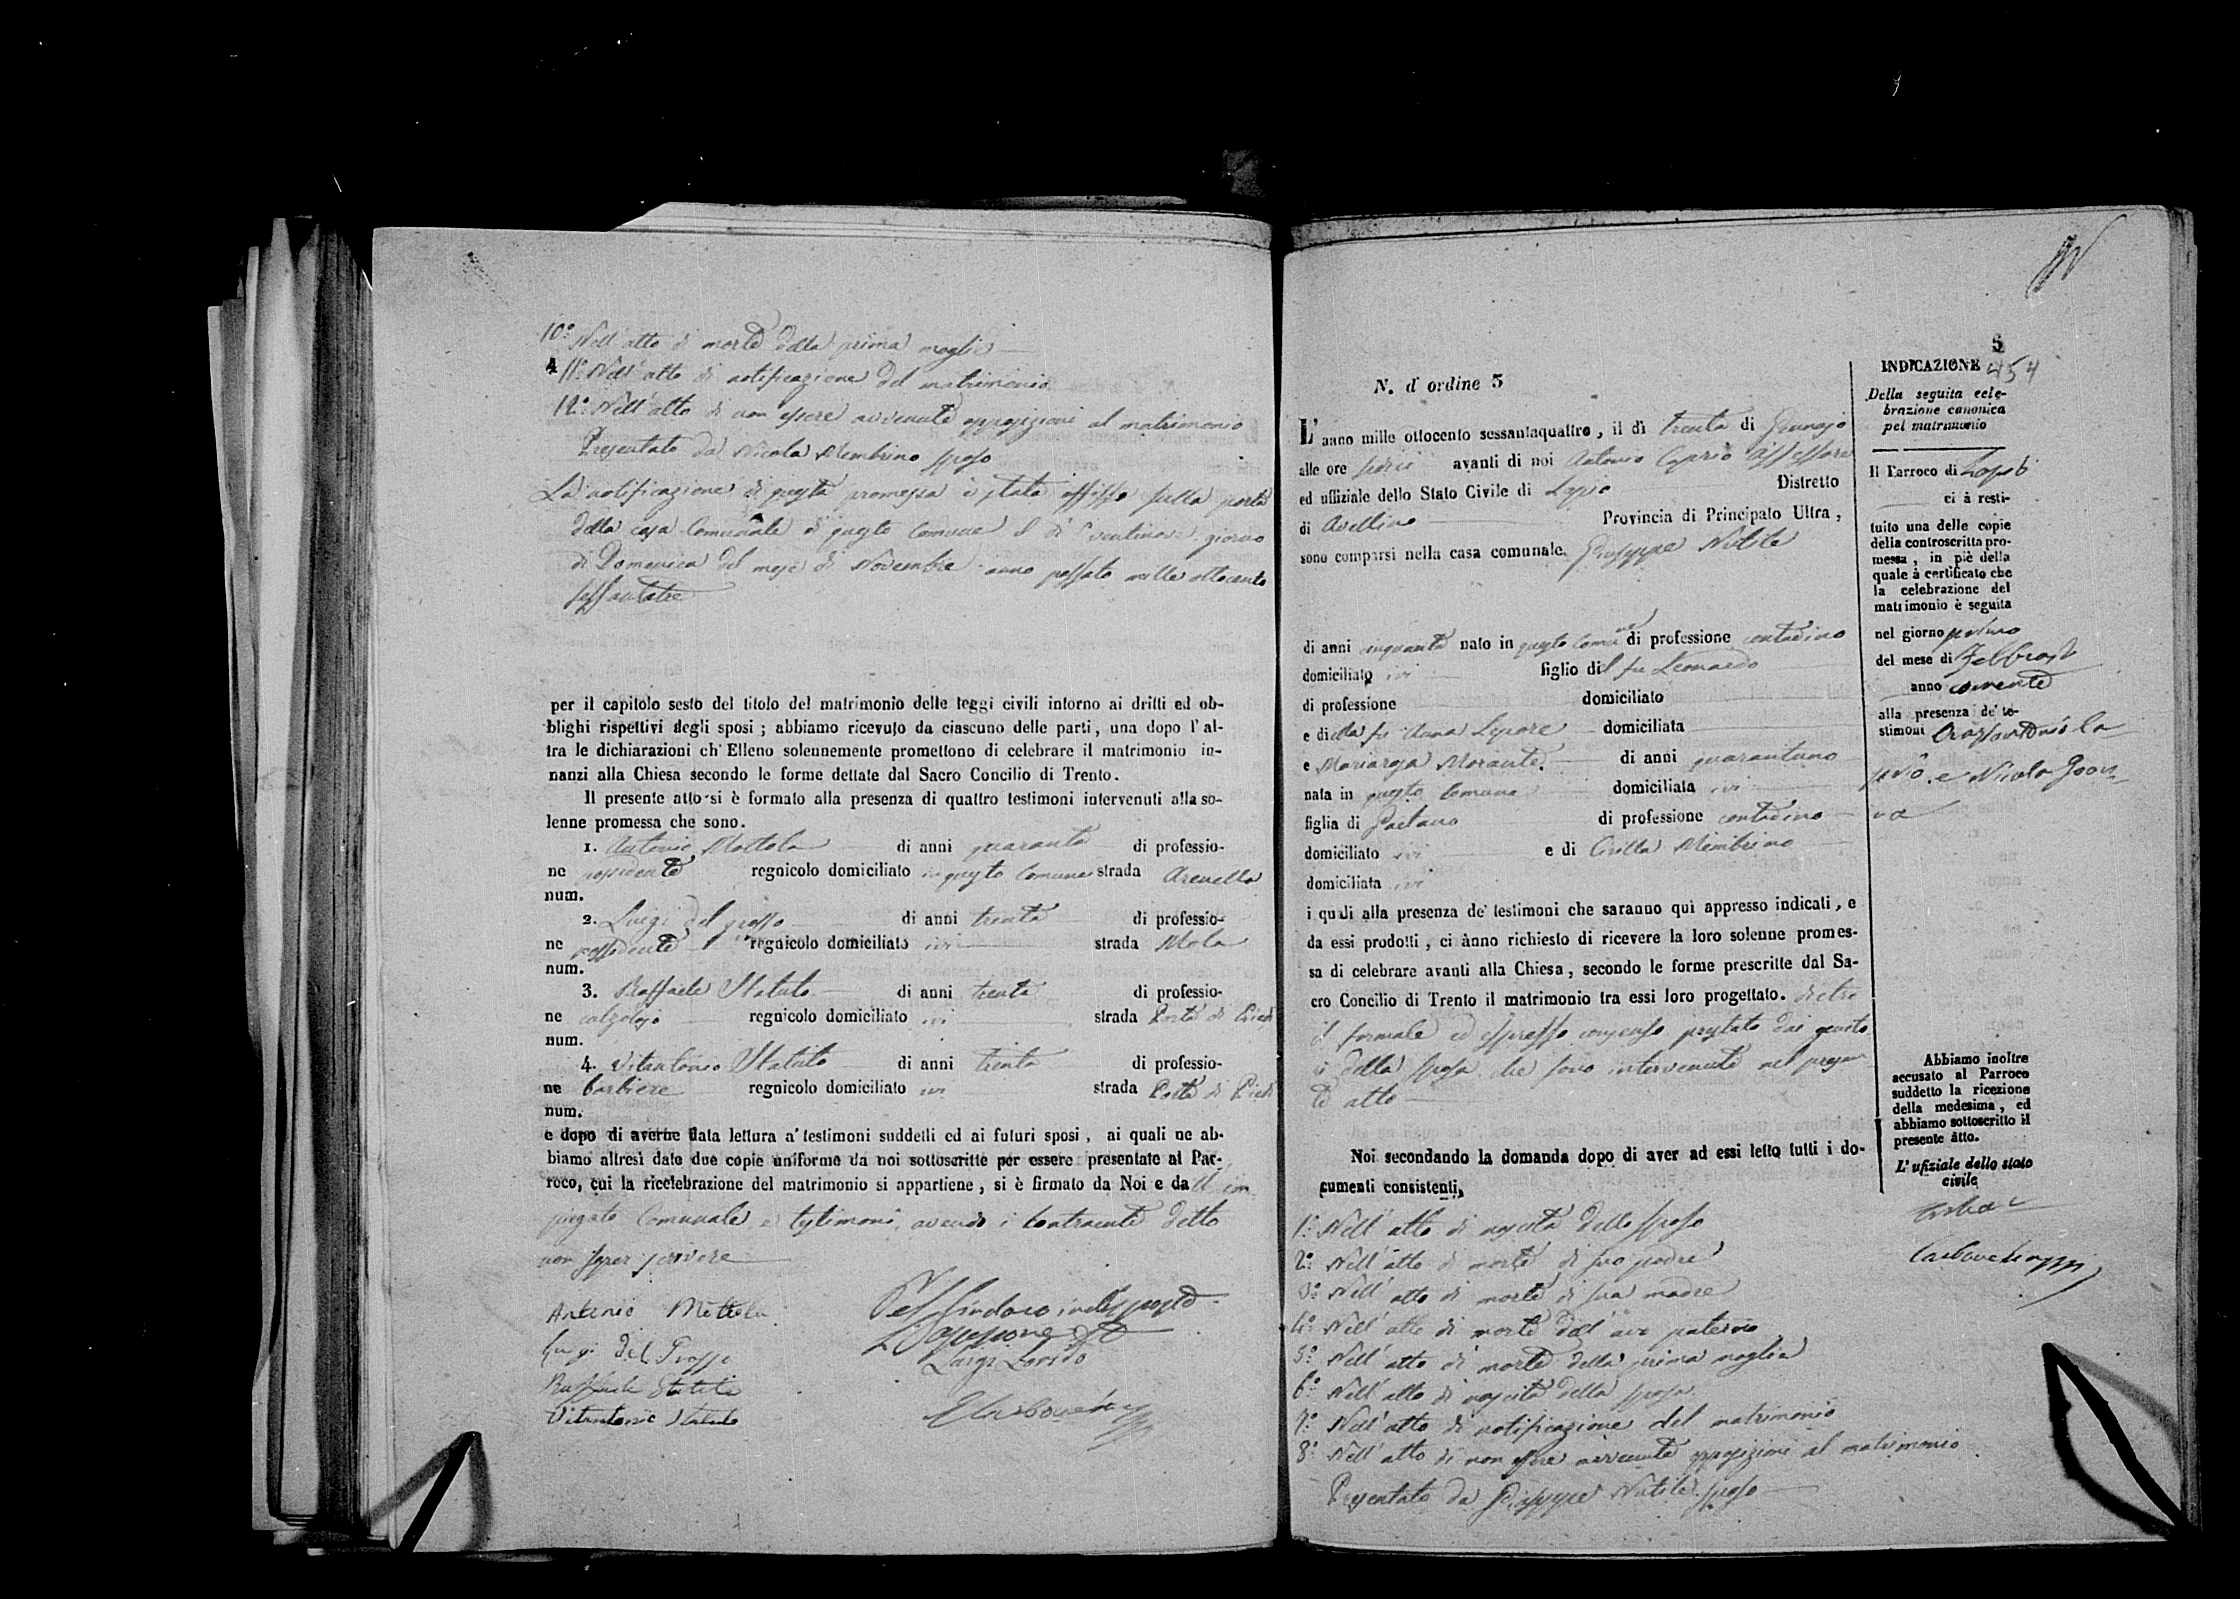 10.° Nell'atto di morte della prima moglie
11.° Nell'atto di notificazione del matrimonio
12.° Nell'atto di non essere avvenute opposizioni al matrimonio
Presentato da Nicola Membrino sposo
La notificazione di questa promessa è stata affissa sulla porta
della casa Comunale di questo Comune il dì ventinove giorno
di Domenica del mese di Novembre anno passato mille ottocento
sessantatre
per il capitolo sesto del titolo del matrimonio delle leggi civili intorno ai dritti ed ob-
blighi rispettivi degli sposi ; abbiamo ricevuto da ciascuno delle parti, una dopo l'al-
tra le dichiarazioni ch'Elleno solennemente promettono di celebrare il matrimonio in-
nanzi alla Chiesa secondo le forme dettate dal Sacro Concilio di Trento.
Il presente atto si è formato alla presenza di quattro testimoni intervenuti alla so-
lenne promessa che sono.
1. Antonio Mottola di anni quaranta di professio-
ne possidente regnicolo domiciliato in questo Comune strada Arenella
num.
2. Luigi del Grosso di anni trenta di professio-
ne possidente regnicolo domiciliato ivi strada Mola
num.
3. Raffaele Statuto di anni trenta di professio-
ne calzolajo regnicolo domiciliato ivi strada Porta di
num.
4. Vitantonio Statuto di anni trenta di professio-
ne barbiere regnicolo domiciliato ivi strada Porta di
num.
e dopo di averne data lettura a' testimoni suddetti ed ai futuri sposi, ai quali ne ab-
biamo altresì date due copie uniforme da noi sottoscritte per essere presentate al Par-
roco, cui la ricelebrazione del matrimonio si appartiene, si è firmato da Noi e dall'im
piegato Comunale e testimoni, avendo i contraenti detto
non saper scrivere
Antonio Mottola
Luigi Del Grosso
Raffaele Statuto
Vitantonio Statuto
Pel Sindaco indisposto
Luigi
N. d'ordine 5
L'anno mille ottocento sessantaquattro, il dì trenta di Gennajo
alle ore sedici avanti di noi Antonio Caprio Assessore
ed uffiziale dello Stato Civile di Lapio Distretto
di Avellino Provincia di Principato Ultra,
sono comparsi nella casa comunale Giuseppe Nitile
di anni cinquanta nato in questo Comune di professione contadino
domiciliato ivi figlio del fu Leonardo
di professione domiciliato
e della fu Anna Lepore domiciliata
e Mariarosa Morante di anni quarantuno
nata in questo Comune domiciliata ivi
figlia di Gaetano di professione contadino
domiciliato ivi e di Cirilla Membrino
domiciliata ivi
i quali alla presenza de' testimoni che saranno quì appresso indicati, e
da essi prodotti, ci ànno richiesto di ricevere la loro solenne promes-
sa di celebrare avanti alla Chiesa, secondo le forme prescritte dal Sa-
cro Concilio di Trento il matrimonio tra essi loro progettato. dietro
il formale ed espresso consenso prestato dai genito
ri della sposa che sono intervenuti nel presen
te atto
Noi secondando la domanda dopo di aver ad essi letto tutti i do-
cumenti consistenti,
1.° Nell'atto di nascita dello sposo
2.° Nell'atto di morte di suo padre
3.° Nell'atto di morte di sua madre
4.° Nell'atto di morte dell'avo paterno
5.° Nell'atto di morte della prima moglie
6.° Nell'atto di nascita della sposa
7.° Nell'atto di notificazione del matrimonio
8.° Nell'atto di non essere avvenute opposizioni al matrimonio
Presentato da Giuseppe Nitile sposo
5
454
INDICAZIONE
Della seguita cele-
brazione canonica
pel matrimonio
Il Parroco di Lapio
ci à resti-
tuito una delle copie
della controscritta pro-
messa, in piè della
quale à certificato che
la celebrazione del
matrimonio è seguita
nel giorno primo
del mese di Febbraio
anno corrente
alla presenza de' te-
stimoni
e Nicola
Abbiamo inoltre
accusato al Parroco
suddetto la ricezione
della medesima, ed
abbiamo sottoscritto il
presente atto.
L'ufiziale dello stato
civile